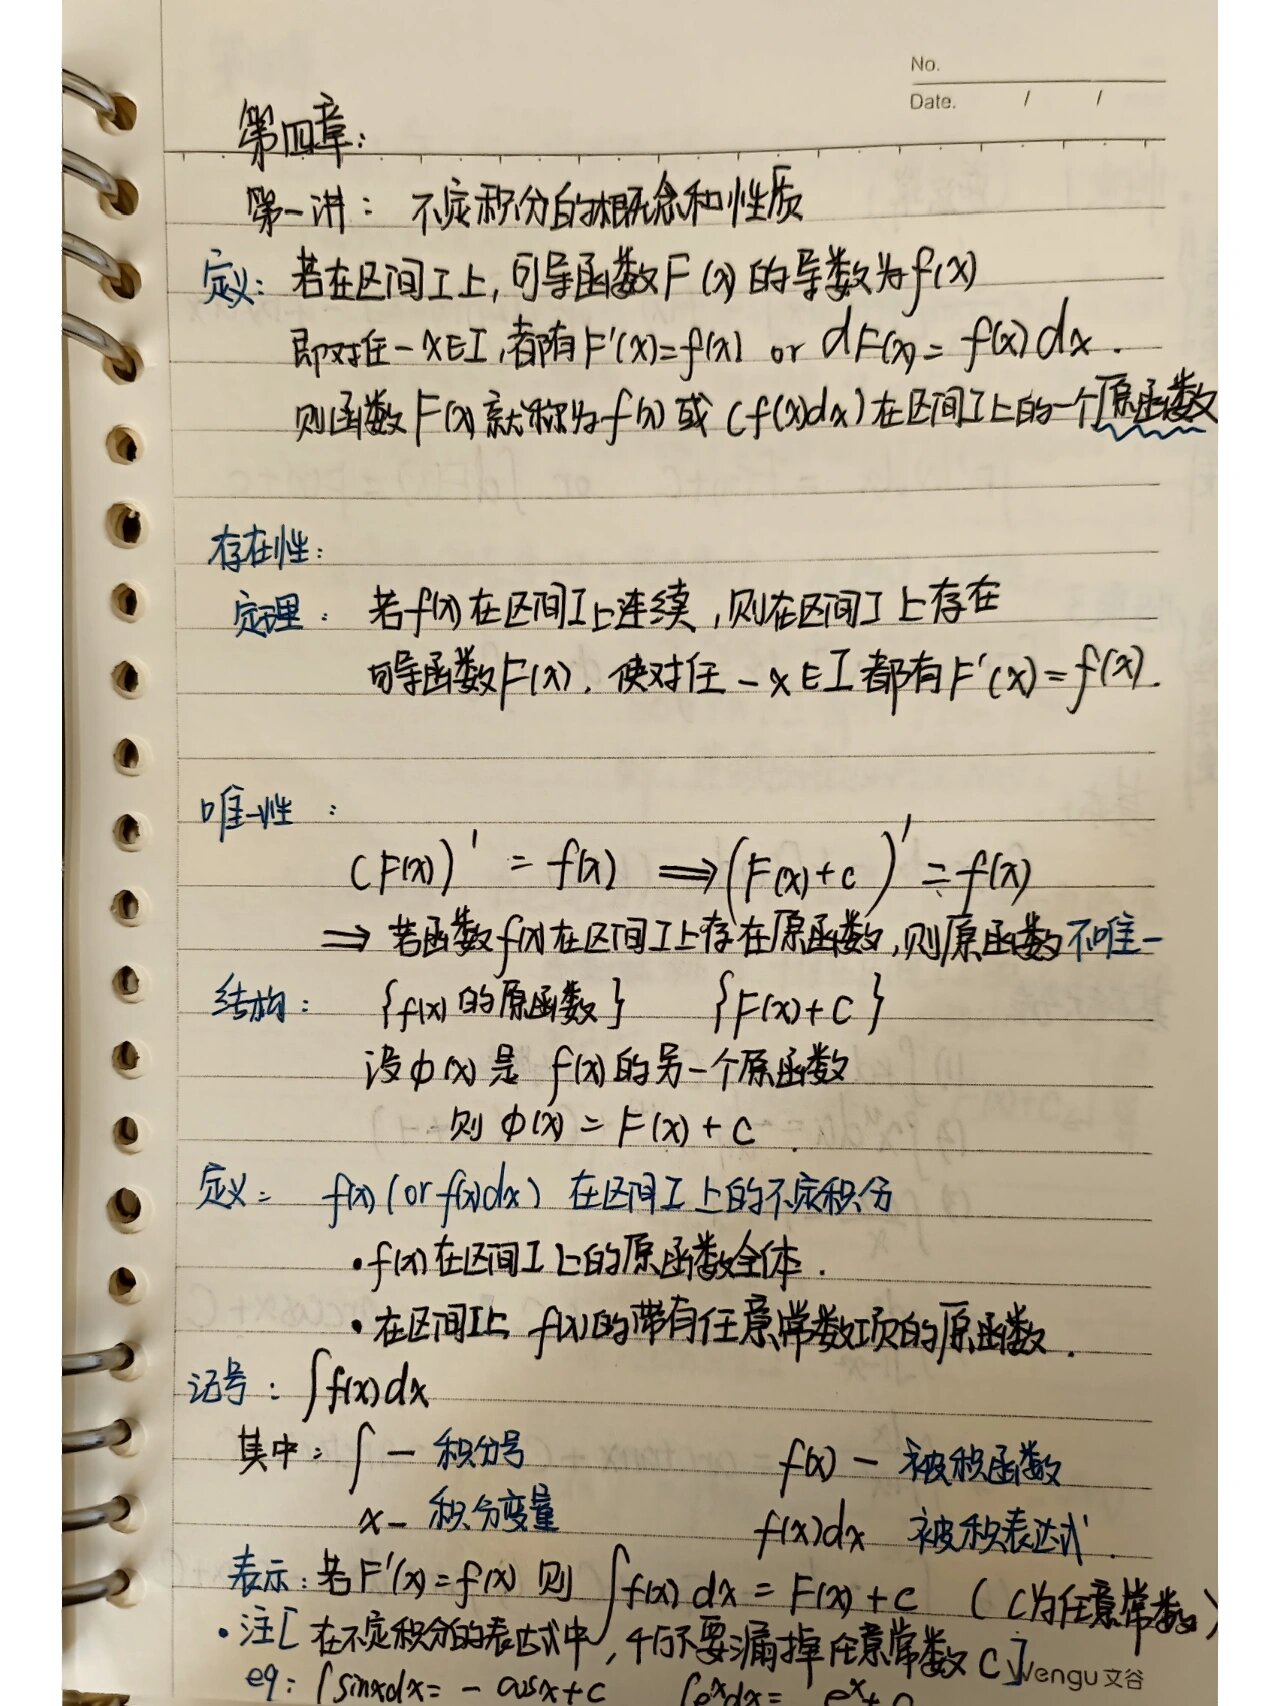 No.
Date. / /
第四章:
第一讲: 不定积分的概念和性质
定义: 若在区间I上,可导函数F(x)的导数为f(x)
即对任一x∈I,都有F'(x)=f(x) or dF(x)=f(x)dx.
则函数F(x)就称为f(x)或(f(x)dx)在区间I上的一个原函数
存在性:
定理: 若f(x)在区间I上连续,则在区间I上存在
可导函数F(x),使对任一x∈I都有F'(x)=f(x).
唯一性:
(F(x))'=f(x) ⟹ (F(x)+c)'=f(x)
⟹ 若函数f(x)在区间I上存在原函数,则原函数不唯一
结构: {f(x)的原函数} {F(x)+C}
设φ(x)是f(x)的另一个原函数
则φ(x)=F(x)+C
定义: f(x)(or f(x)dx)在区间I上的不定积分
•f(x)在区间I上的原函数全体.
•在区间I上f(x)的带有任意常数项的原函数.
记号: ∫f(x)dx
其中: ∫—积分号 f(x)—被积函数
x—积分变量 f(x)dx 被积表达式.
表示: 若F'(x)=f(x)则∫f(x)dx=F(x)+C (C为任意常数)
•注[在不定积分的表达式中,千万不要漏掉任意常数C]
Wengu文谷
eg: ∫sinxdx=-cosx+C ∫eˣdx=eˣ+C